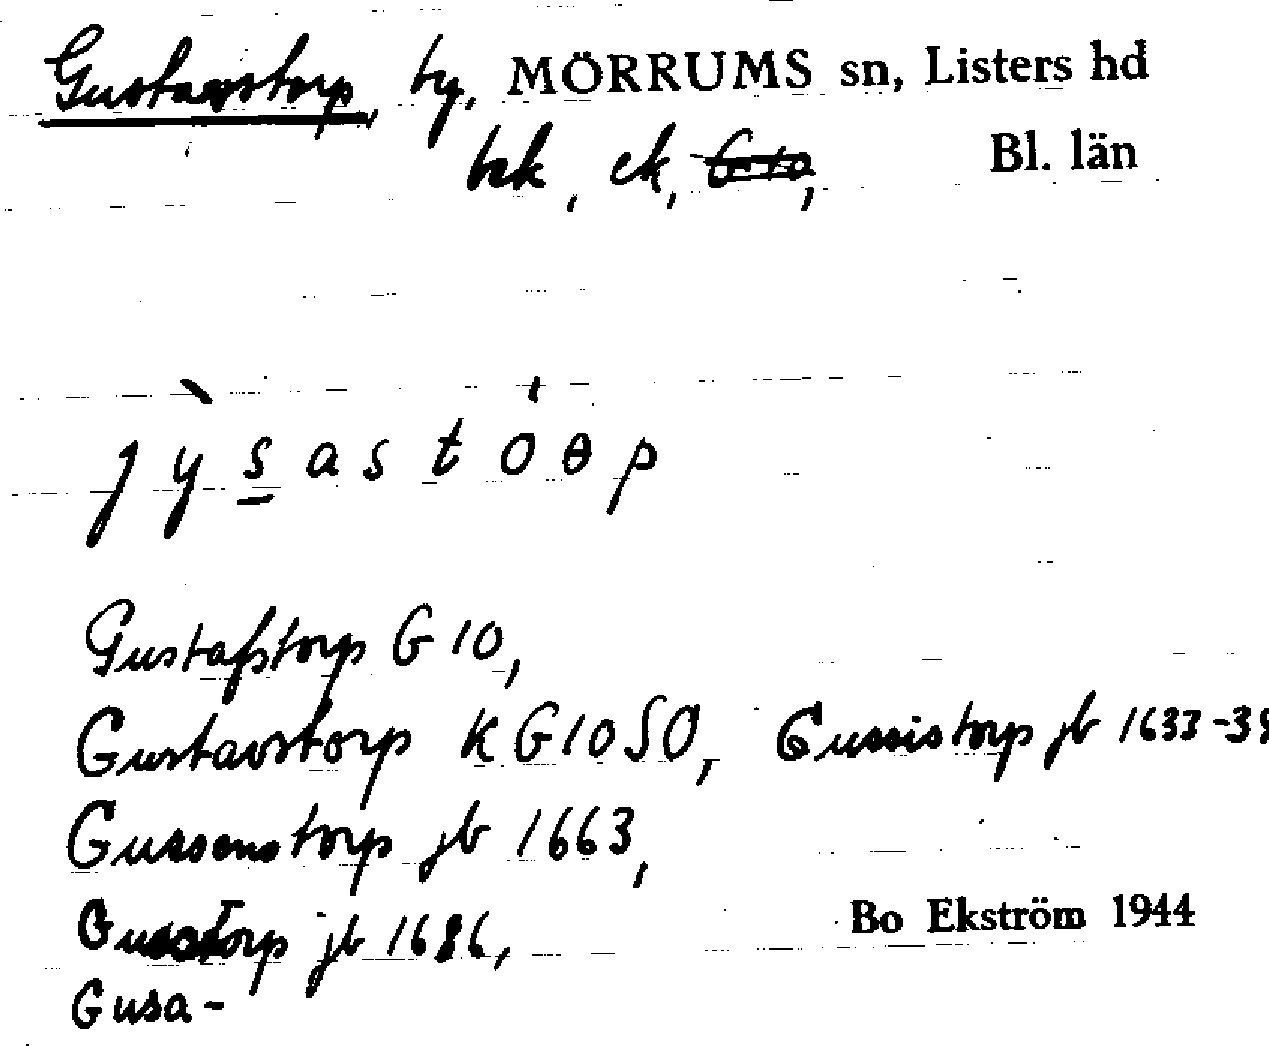 Gustavstorp, by, MÖRRUMS sn, Listers hd
hzk, ek, G 10, Bl. län
j y s a s t o ɵ p
Gustafstorp G 10,
Gustavstorp K G10 SO, Gussistorp jb 1633-38
Gussenstorp jb 1663,
Gusstorp jb 1686, Bo Ekström 1944
Gusa-